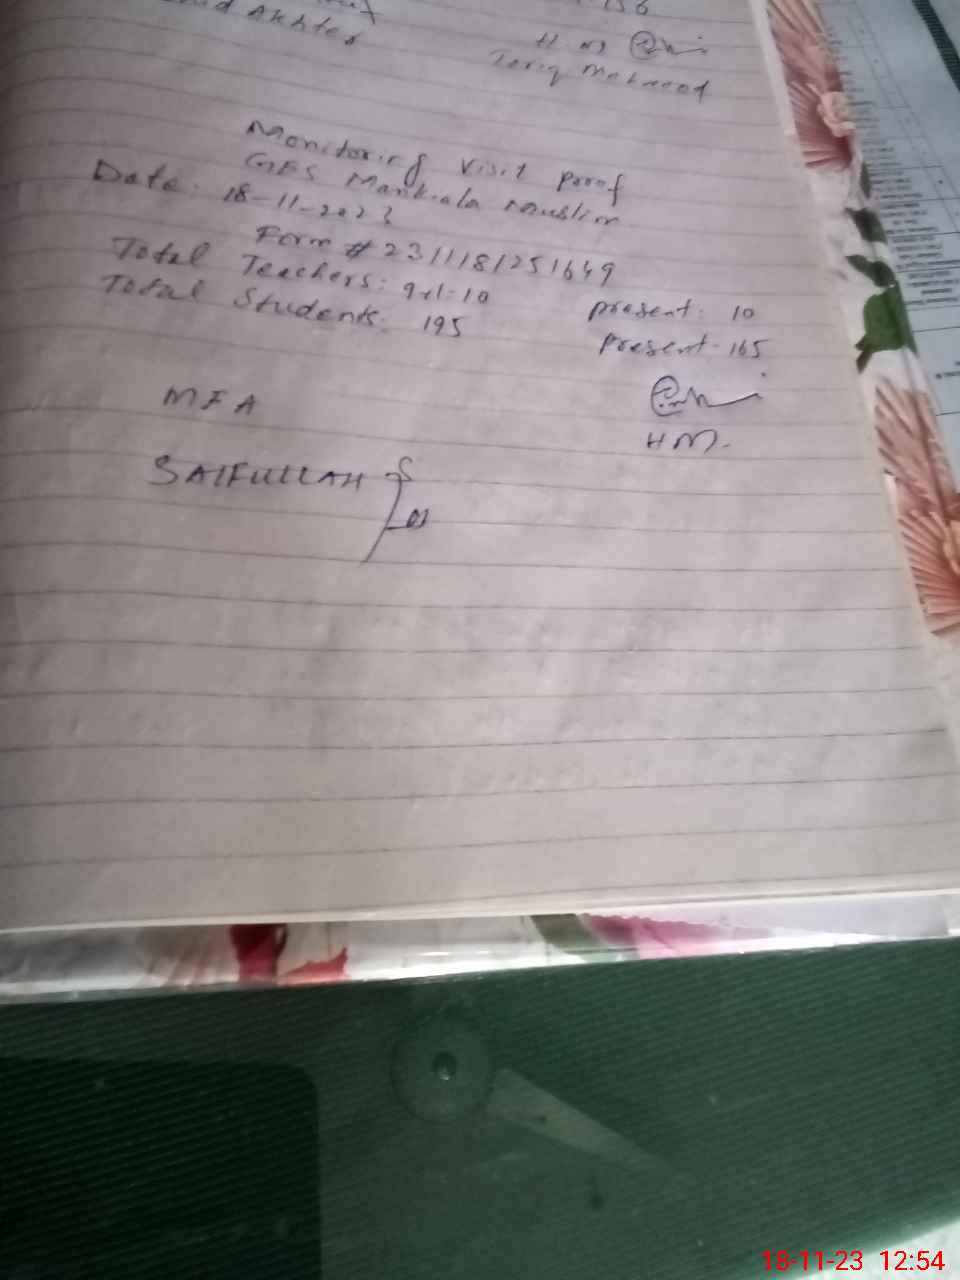 156
Akhter
H M
Tariq Mehmood
Monitoring Visit proof
GES Mankiala Muslim
Date: 18-11-2023
Form # 2311181251649
Total Teachers: 9+1=10 present: 10
Total Students: 195 present- 165
MEA
HM.
SAIFULLAH
18-11-23 12:54